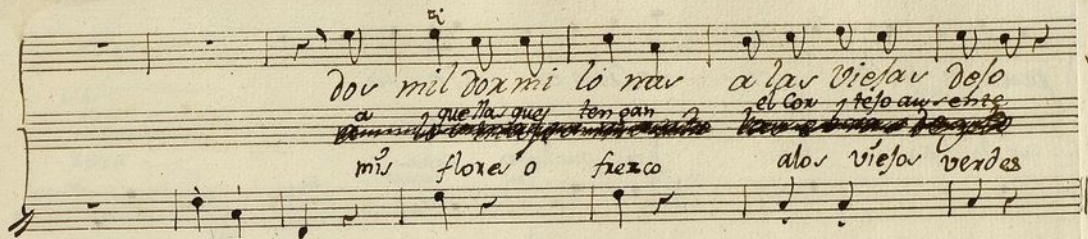 dos mil dormi lo nas a las viejas dejo
a quellas que tengan el Cor tejo ausente
mis flores o frezco alos viejos verdes